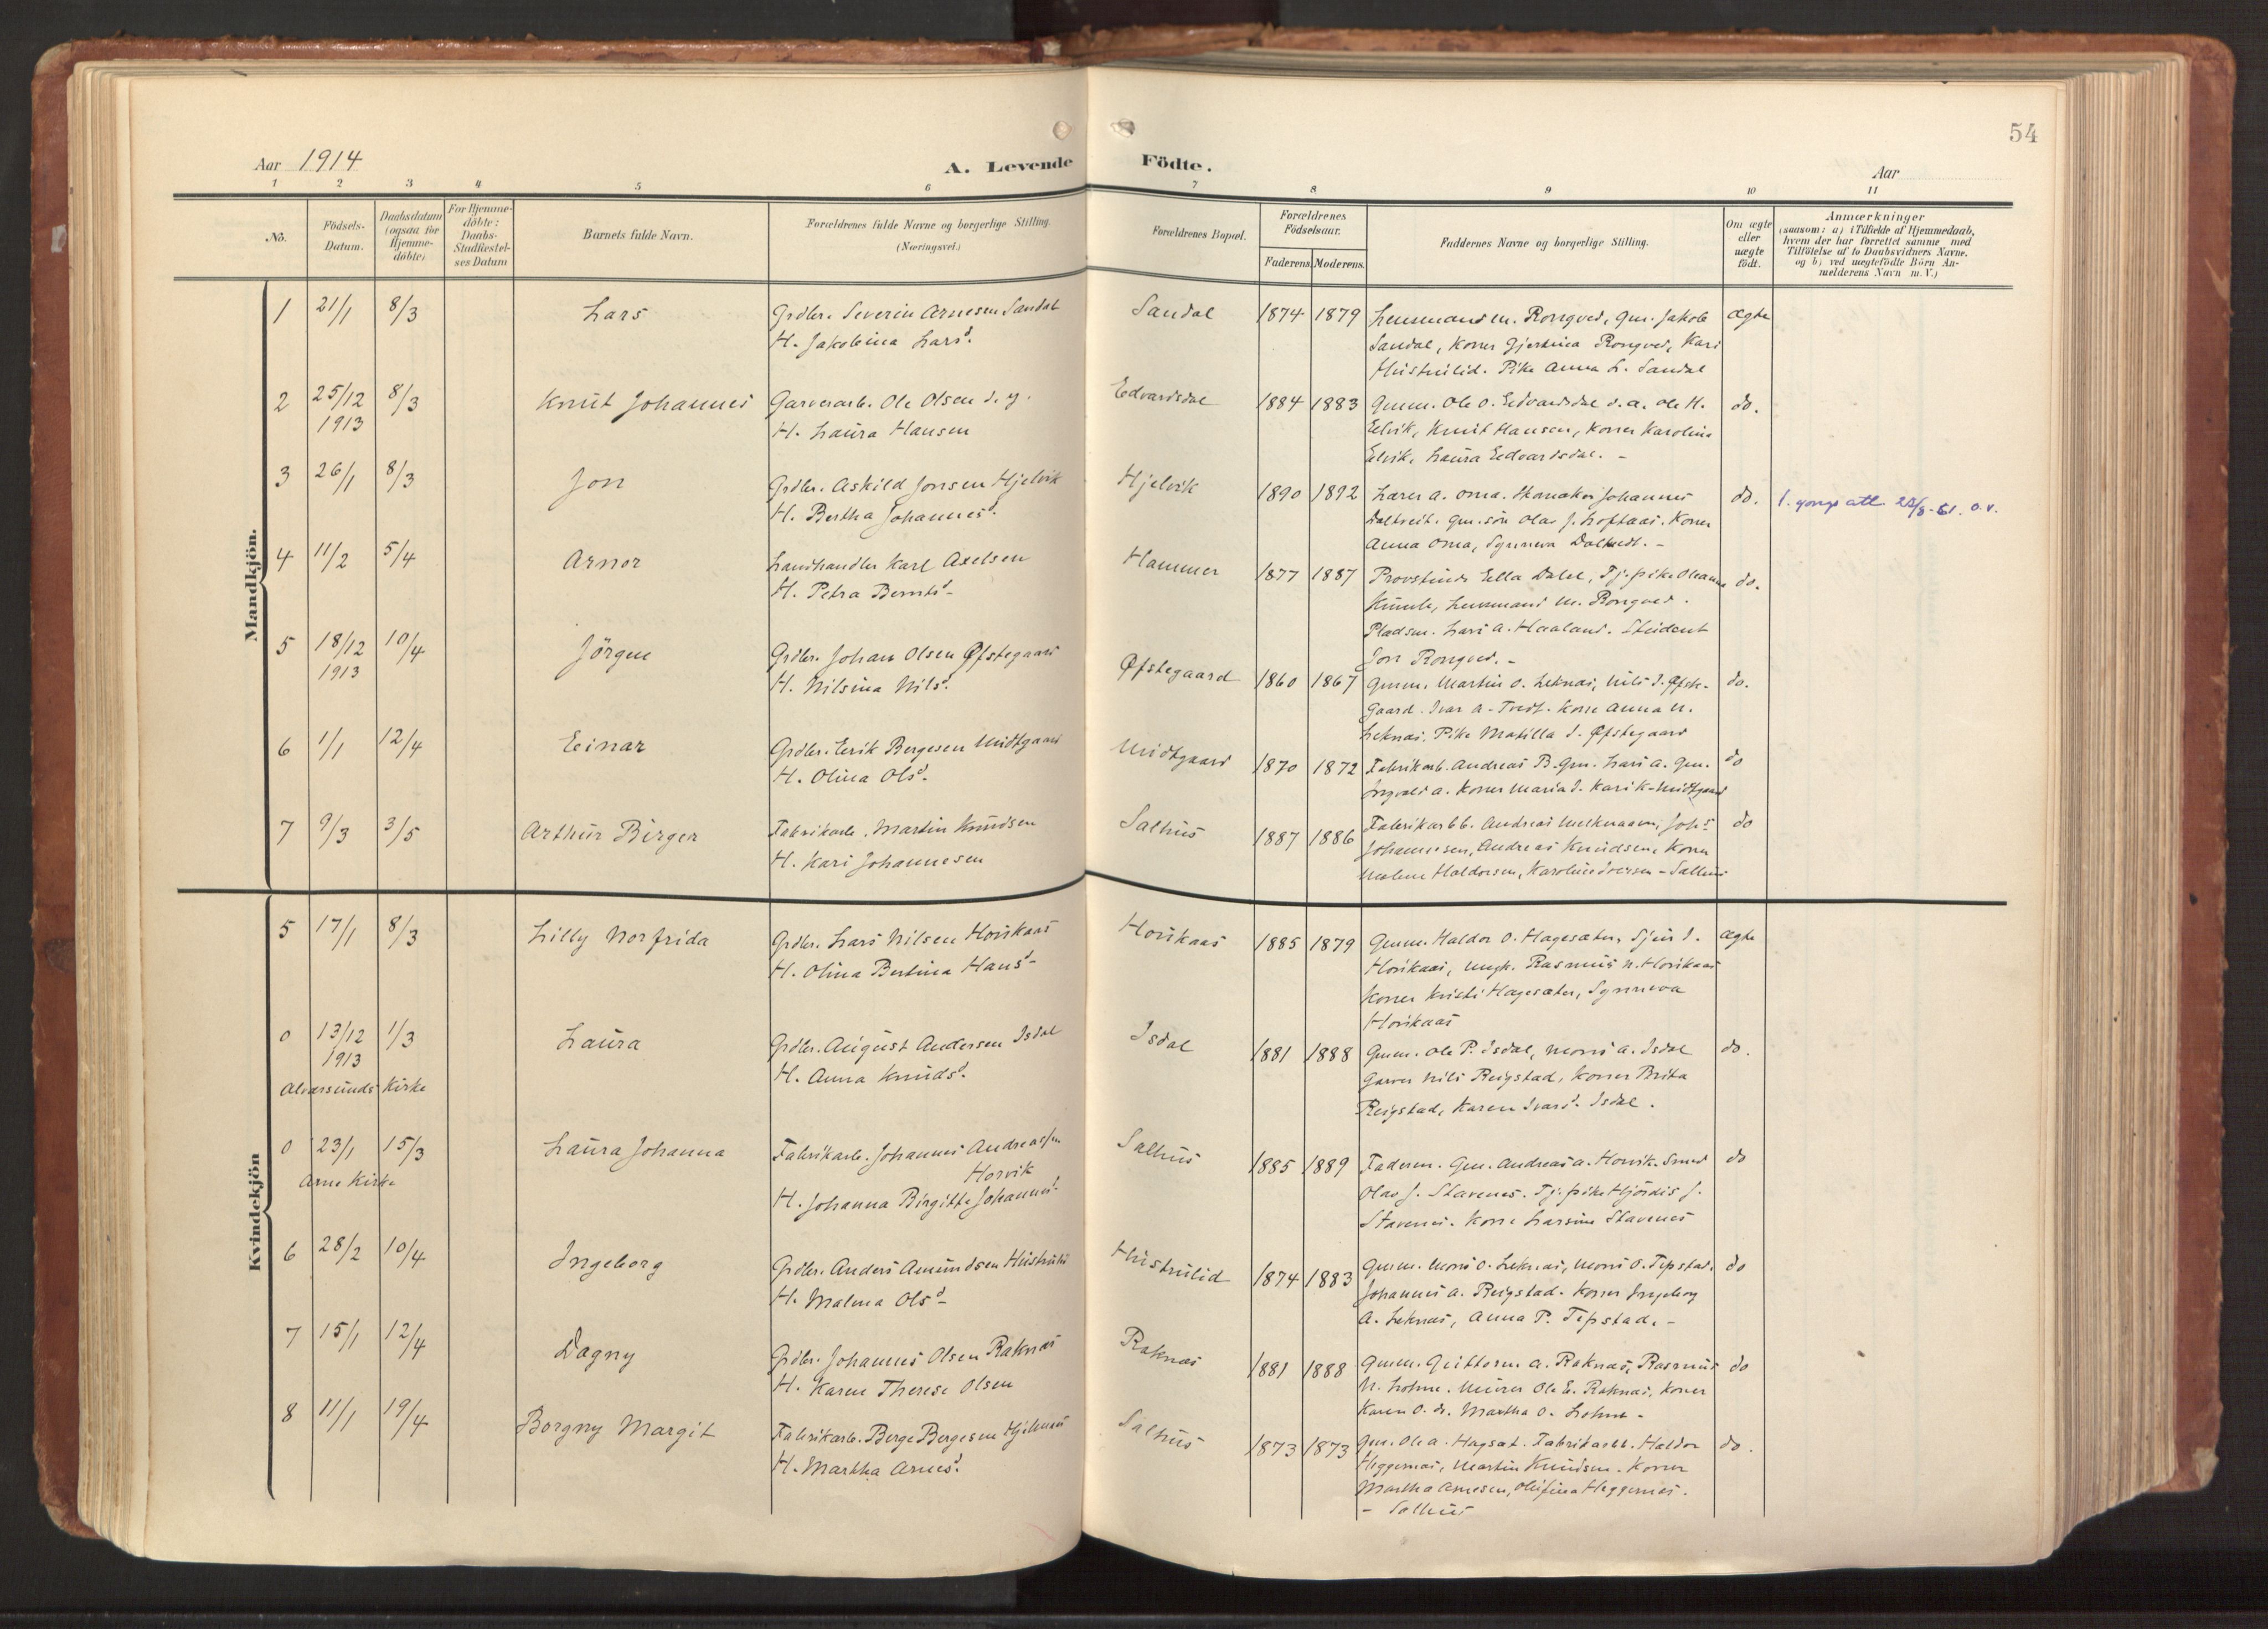 54
Aar 1914
A. Levende Födte.
Aar
1 2 3 4 5 6 7 8 9 10 11
No.
Födsels-
Datum.
Daabsdatum
(ogsaa for
Hjemme-
döbte)
For Hjemme-
döbte:
Daabs-
Stadfæstel-
ses Datum
Barnets fulde Navn.
Forældrenes fulde Navne og borgerlige Stilling.
(Næringsvei.)
Forældrenes Bopæl.
Forældrenes
Födselsaar.
Faderens. Moderens.
Faddernes Navne og borgerlige Stilling.
Om ægte
eller
uægte
födt.
Anmærkninger
(saasom: a) i Tilfælde af Hjemmedaab,
hvem der har forrettet samme med
Tilföielse af to Daabsvidners Navne,
og b) ved uægtefödte Börn An-
melderens Navn m. V.)
Mandkjön.
1 21/1 8/3 Lars Grdbr. Severin Arnesen Sandal Sandal 1874 1879 Lensmand M. Rongved, Gm. Jakob ægte
H. Jakobina Larsd.
Sandal, Koner Gjertina Rongved, Kari
Hustrulid. Pike Anna L. Sandal
2 25/12 8/3 Knut Johannes Garverarb. Ole Olsen d. y. Edvardsdal 1884 1883 Gmm. Ole O. Edvardsdal d. a. Ole H. do.
1913 H. Laura Hansen
Eelvik, Knut Hansen, Koner Karolina
Eelvik, Laura Edvardsdal. -
3 26/1 8/3 Jon Grdbr. Askild Jonsen Hjelvik Hjelvik 1890 1892 Lærer A. Oma. Skomaker Johannes do.
H. Bertha Johannesd.
Daltveit. Gm. sön Olav J. Loftaas. Koner
Anna Oma, Synneva Daltveit. -
4 11/2 5/4 Arnor Landhandler Karl Axelsen Hammer 1877 1887 Provstinde Ella Dahl, Tj. pike Oleanna do.
H. Petra Berntsd.
Lensmand M. Rongved.
Pladsm. Lars A. Haaland. Student
Jon Rongved. -
5 18/12 10/4 Jörgen Grdbr. Johan Olsen Øfstegaard Øfstegaard 1860 1867 Gmm. Martin O. Leknes, Nils J. Øfste- do.
1913 H. Nilsina Nilsd.
gaard. Ivar A. Tvedt. Kone Anna N.
Leknes. Pike Matilla J. Øfstegaard
6 1/1 12/4 Einar Grdbr. Erik Bergesen Midtgaard Midtgaard 1870 1872 Fabrikarb. Andreas B. Gm. Lars A. Gm. do
H. Olina Olsd.
Ingvald A. Koner Maria J. Kari K. Midtgaard
7 9/3 3/5 Arthur Birger Fabrikarb. Martin Knudsen Salhus 1887 1886 Fabrikarbb. Andreas Johs. do
H. Kari Johannesen
Johannesen, Andreas Knudsen, Koner
Malene Haldorsen, Karoline Iversen - Salhus
Kvindekjön
5 17/1 8/3 Lilly Norfrida Grdbr. Lars Nilsen Horikaas Horikaas 1885 1879 Gmm. Haldor O. Hagesæter, Sjur J. ægte
H. Olina Bertina Hansd.
Horikaas, Ungk. Rasmus N. Horikaas
Koner Kristi Hagesæter, Synneva
Horikaas
0 13/12 1/3 Laura Grdbr. August Andersen Isdal Isdal 1881 1888 Gmm. Ole P. Isdal, Mons A. Isdal do.
1913 H. Anna Knudsd.
Alversunds Kirke
Garver Nils Reigstad, Koner Brita
Reigstad, Karen Ivarsd. Isdal.
0 23/1 15/3 Laura Johanna Fabrikarb. Johannes Andreassen Salhus 1885 1889 Faderen. Gm. Andreas A. Horvik. Smed do
Arne Kirke Horvik
H. Johanna Birgitte Johannesd.
Olav J. Stavenes. Tj. pike Hjördis J.
Stavenes. Kone Larsine Stavenes
6 28/2 10/4 Ingeborg Grdbr. Anders Amundsen Hustrulid Hustrulid 1874 1883 Gmm. Mons O. Leknes, Mons O. Tepstad. do
H. Malena Olsd.
Johannes A. Reigstad. Koner Ingeborg
A. Leknes, Anna P. Tepstad. -
7 15/1 12/4 Dagny Grdbr. Johannes Olsen Raknes Raknes 1881 1888 Gmm. Guttorm A. Raknes, Rasmus do
H. Karen Therese Olsen
N. Lohne. Murer Ole E. Raknes, Koner
Karen O. do. Martha O. Lohne -
8 11/1 19/4 Borgny Margit Fabrikarb. Berge Bergesen Hjelmaas Salhus 1873 1873 Gm. Ole A. Hagsæt. Fabrikarbb. Haldor do.
H. Martha Arnesd.
Heggernes, Martin Knudsen. Koner
Martha Arnesen, Olufina Heggernes.
- Salhus